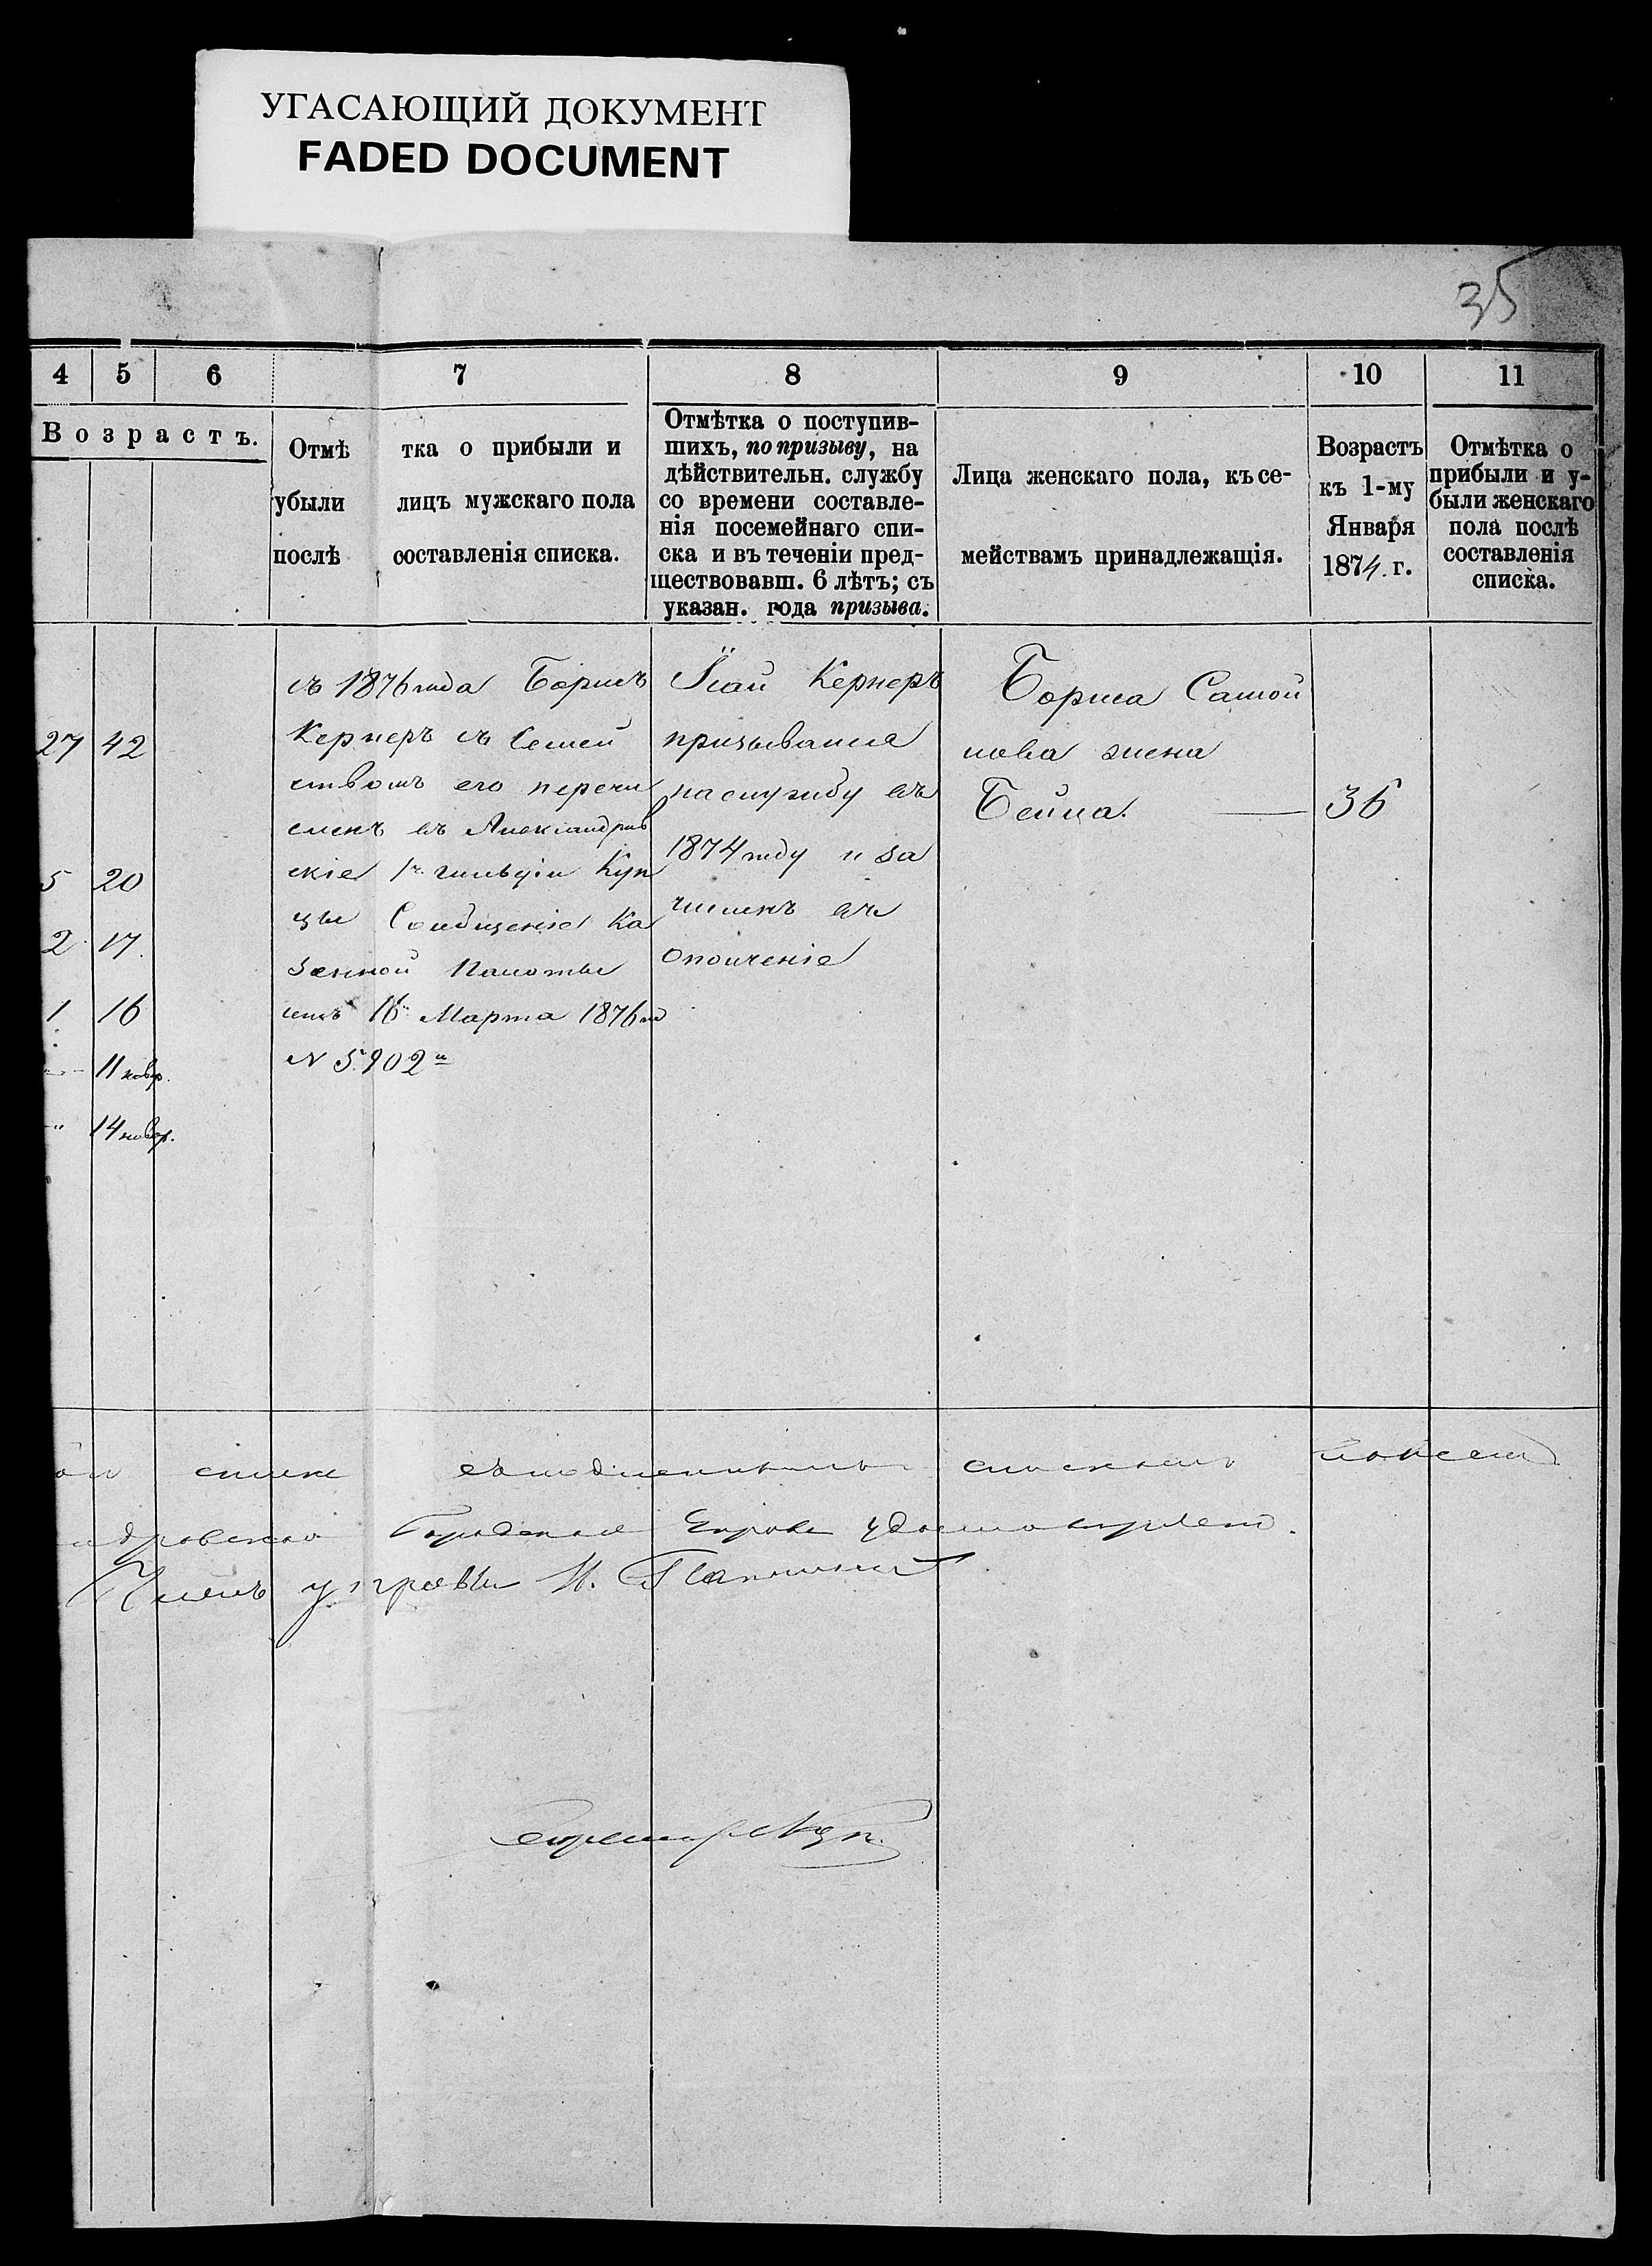 УГАСАЮЩИЙ ДОКУМЕНТ
FADED DOCUMENT
35
4 5 6 7 8 9 10 11
Возрастъ.
Отмѣтка о прибыли и
убыли лицъ мужскаго пола
послѣ составленія списка.
Отмѣтка о поступив-
шихъ, по призыву, на
дѣйствительн. службу
со времени составле-
нія посемейнаго спи-
ска и въ теченіи пред-
шествовавш. 6 лѣтъ; съ
указан. года призыва.
Лица женскаго пола, къ се-
мействамъ принадлежащія.
Возрастъ
къ 1-му
Января
1874. г.
Отмѣтка о
прибыли и у-
были женскаго
пола послѣ
составленія
списка.
27 42
5 20
2 17.
1 16
11 новр.
14 новр.
съ 1876 года Борисъ
Кернеръ съ Семей
ствомъ его перечи
сленъ въ Александров
скіе 1й гильдіи Куп
цы Сообщеніе Ка
зенной Палаты
отъ 16 Марта 1876 год
N 5902
Исай Кернеръ
призывался
на службу въ
1874 году и за
численъ въ
ополченіе
Бориса Самой
лова жена
Бейла. — 36
списка
Городская Управа удостовѣряетъ.
Членъ управы И.